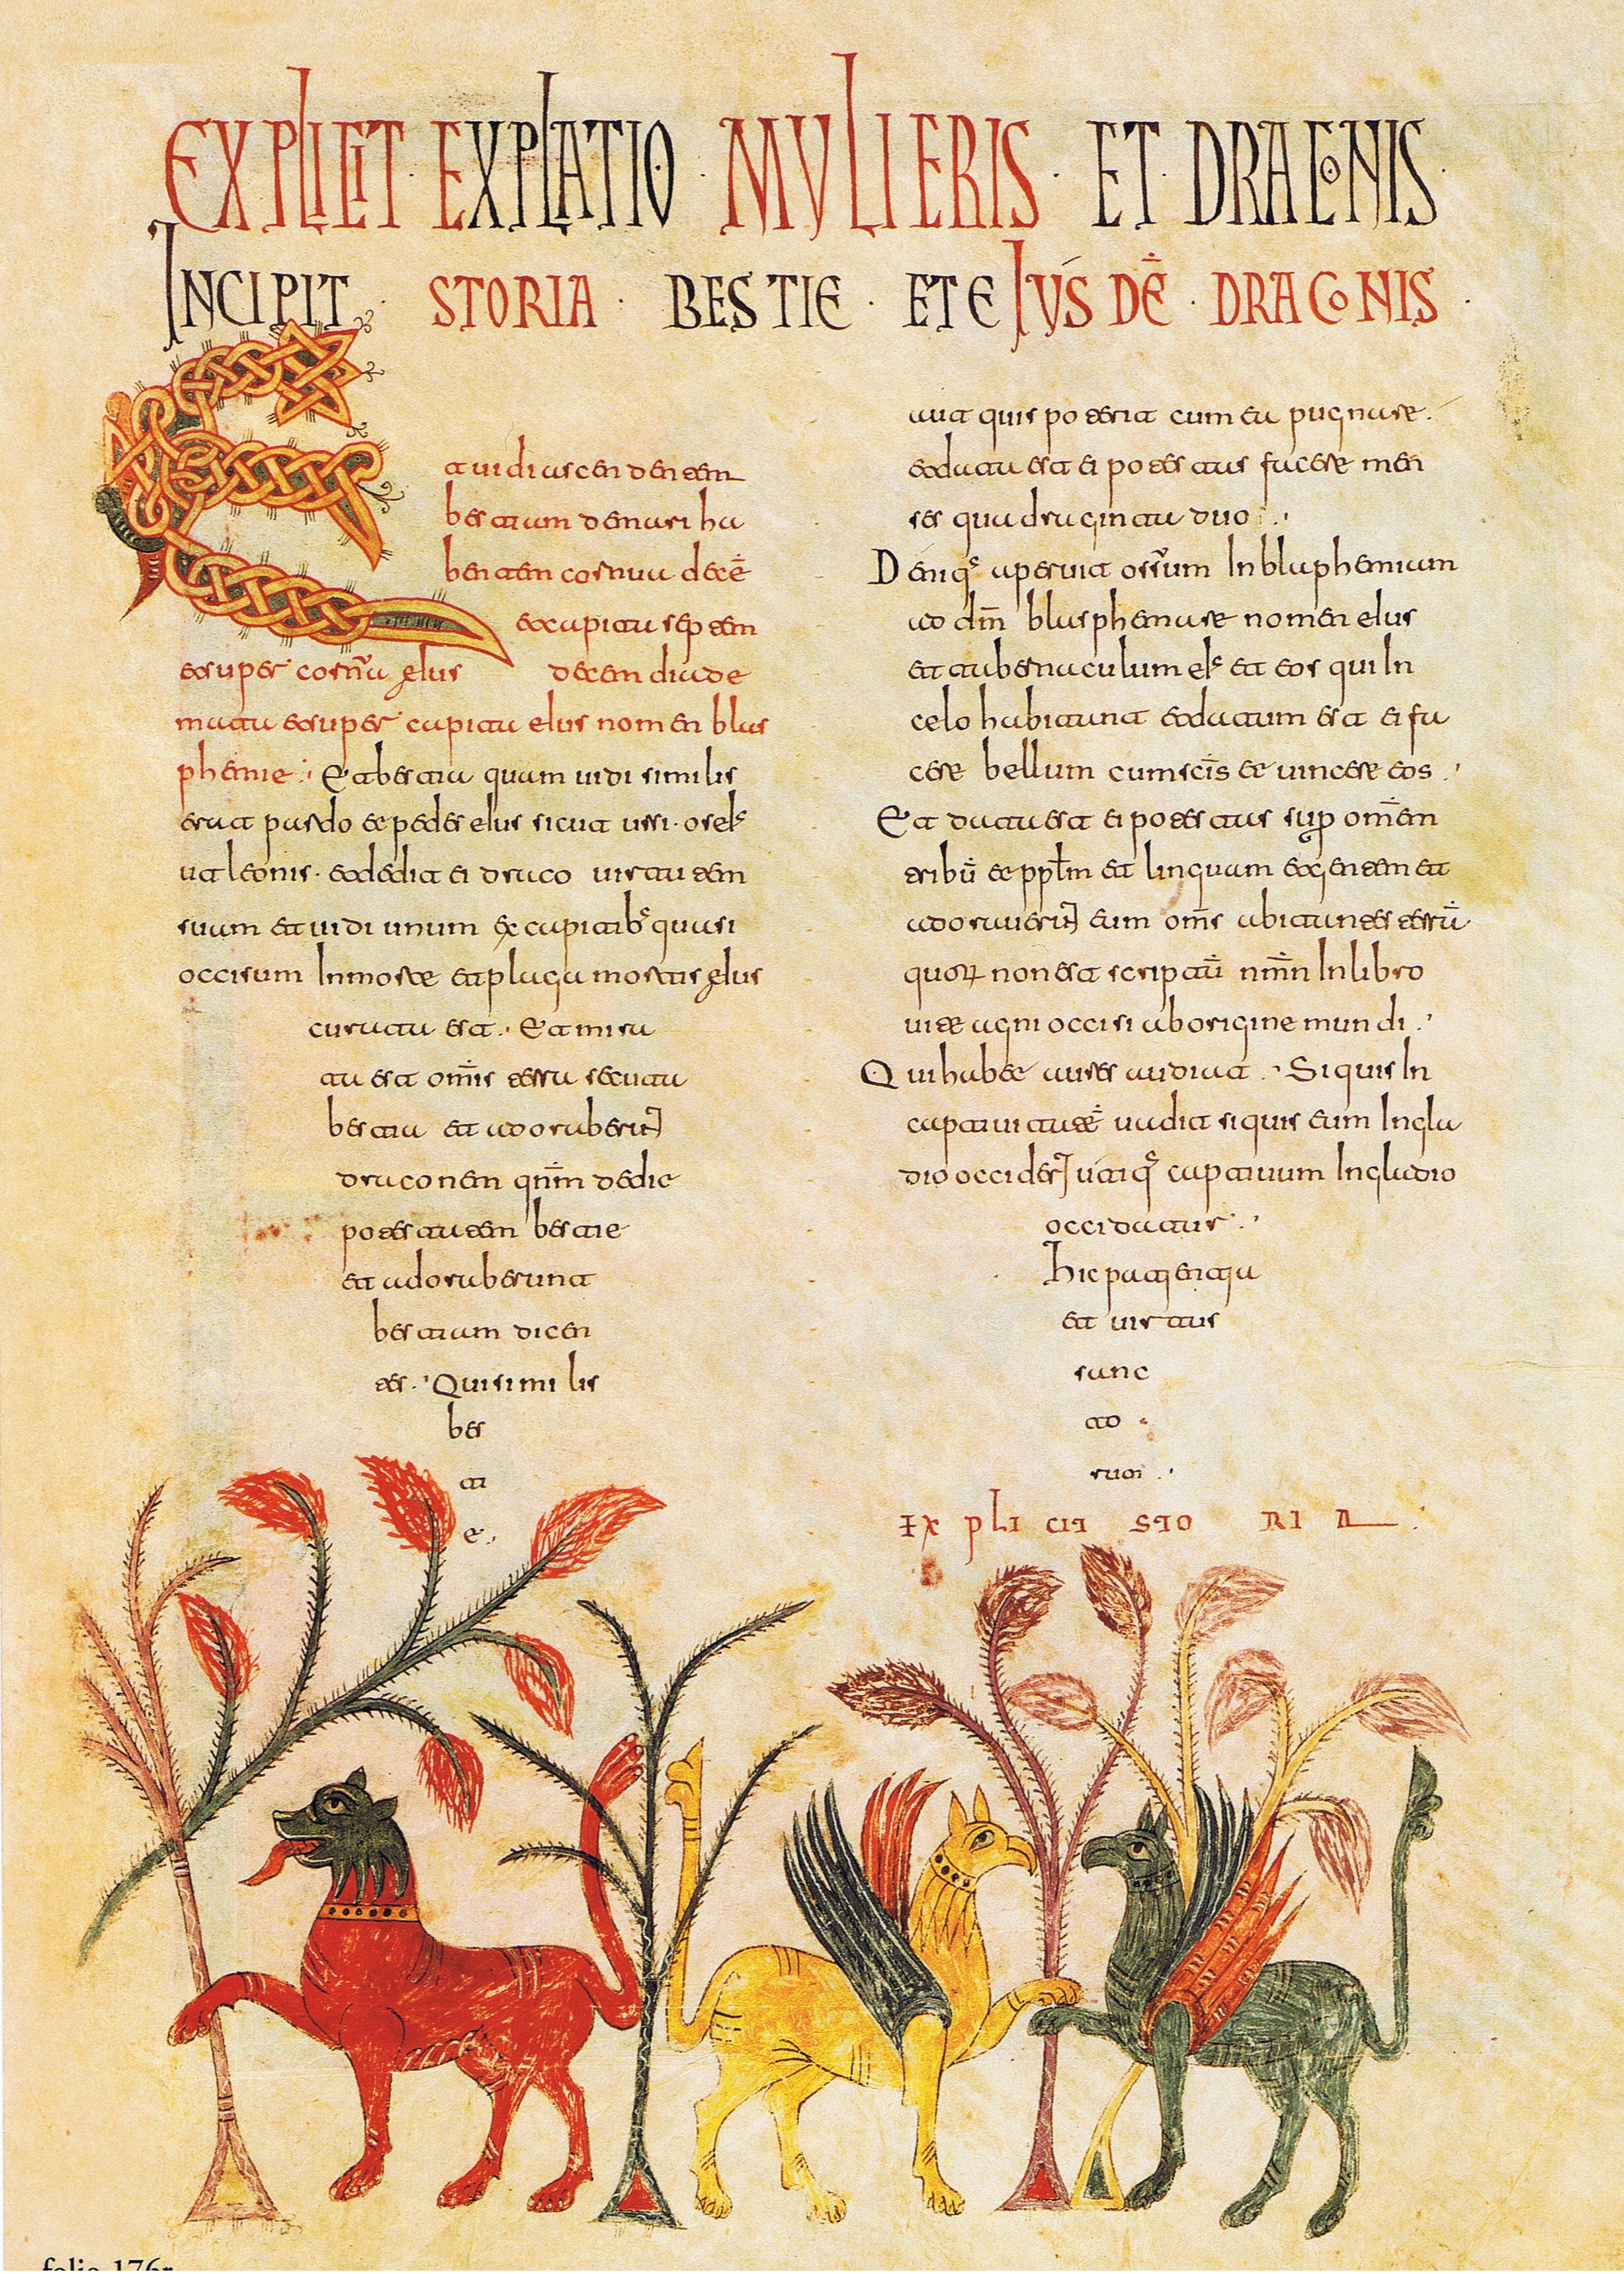 EXPLICIT · EXPLATIO · MULIERIS · ET · DRACONIS
INCIPIT · STORIA · BESTIE · ET EIUSDĒ · DRACONIS ·
Et uidi ascendentem
bestiam de mari ha
bentem cornua decē
et capita septem
et super cornūa eius decem diade
mata et super capita eius nomen blas
phemie : Et bestia quam uidi similis
erat pardo et pedes eius sicut ursi · os eiˢ
ut leonis · et dedit ei draco uirtutem
suam et uidi unum ex capitibˢ quasi
occisum in morte et plaga mortis eius
curata est · Et mira
ta est om̄is terra secuta
bestia et adoraberūt
draconem qn̄m dedit
potestatem bestie
et adoraberunt
bestiam dicen
tes · Qui similis
bes
ti
e ·
aut quis poterit cum ea pugnare ·
et data est ei potestas facere men
ses quadraginta duo :
Deniqˢ aperuit os sūum in blasphemiam
ad dm̄ blasphemare nomen eius
et tabernaculum eiˢ et eos qui in
celo habitant et datum est ei fa
cere bellum cum scīs et uincere eos ·
Et data est ei potestas sup om̄em
tribū et ppl̄m et linguam et gentem et
adorauerūt eum om̄s abitantes terrā
quorꝝ non est scriptū nm̄n in libro
uite agni occisi ab origine mundi ·
Qui habet aures audiat · Si quis in
captiuitatē uadit si quis eum in gla
dio occiderīt utiqˢ captiuum in gladio
occidatur ·
hic patientia
et uirtus
sanc
to
rum ·
EXPLICIT STORIA ·
folio 176r